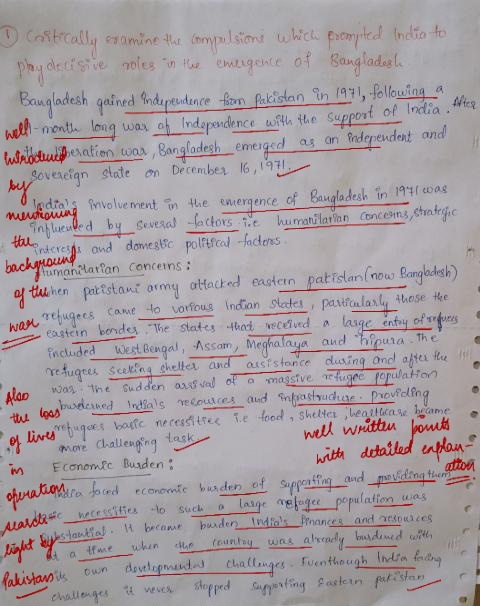 ① Critically examine the compulsions which prompted India to
play decisive roles in the emergence of Bangladesh.
Bangladesh gained independence from Pakistan in 1971, following a
-month long war of Independence with the support of India. After
the liberation war, Bangladesh emerged as an independent and
sovereign state on December 16, 1971.
well
introduced
by
mentioning
the
background
of the
war
India's involvement in the emergence of Bangladesh in 1971 was
influenced by several factors i.e humanitarian concerns, strategic
interests and domestic political factors.
Humanitarian Concerns:
When pakistani army attacked eastern pakistan (now Bangladesh)
refugees came to various Indian states, particularly those the
eastern border. The states that received a large entry of refugees
included West Bengal, Assam, Meghalaya and Tripura. The
refugees seeking shelter and assistance during and after the
was. The sudden arrival of a massive refugee population
burdened India's resources and infrastructure. providing
refugees basic necessities i.e food, shelter, healthcare became
more challenging task.
Also
the loss
of lives
in
operation
search-
light by
Pakistan
well written points
with detailed explan-
ation.
Economic Burden:
India faced economic burden of supporting and providing them
basic necessities to such a large refugee population was
substantial. It became burden India's finances and resources
at a time when the country was already burdened with
its own developmental challenges. Eventhough India facing
challenges it never stopped supporting Eastern pakistan